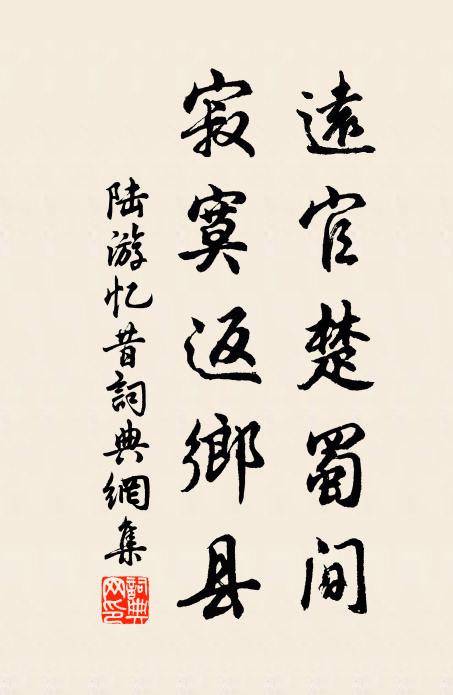 遠官楚蜀间
寂寞返鄉县
陆游忆昔詞典網集
詞典
网印